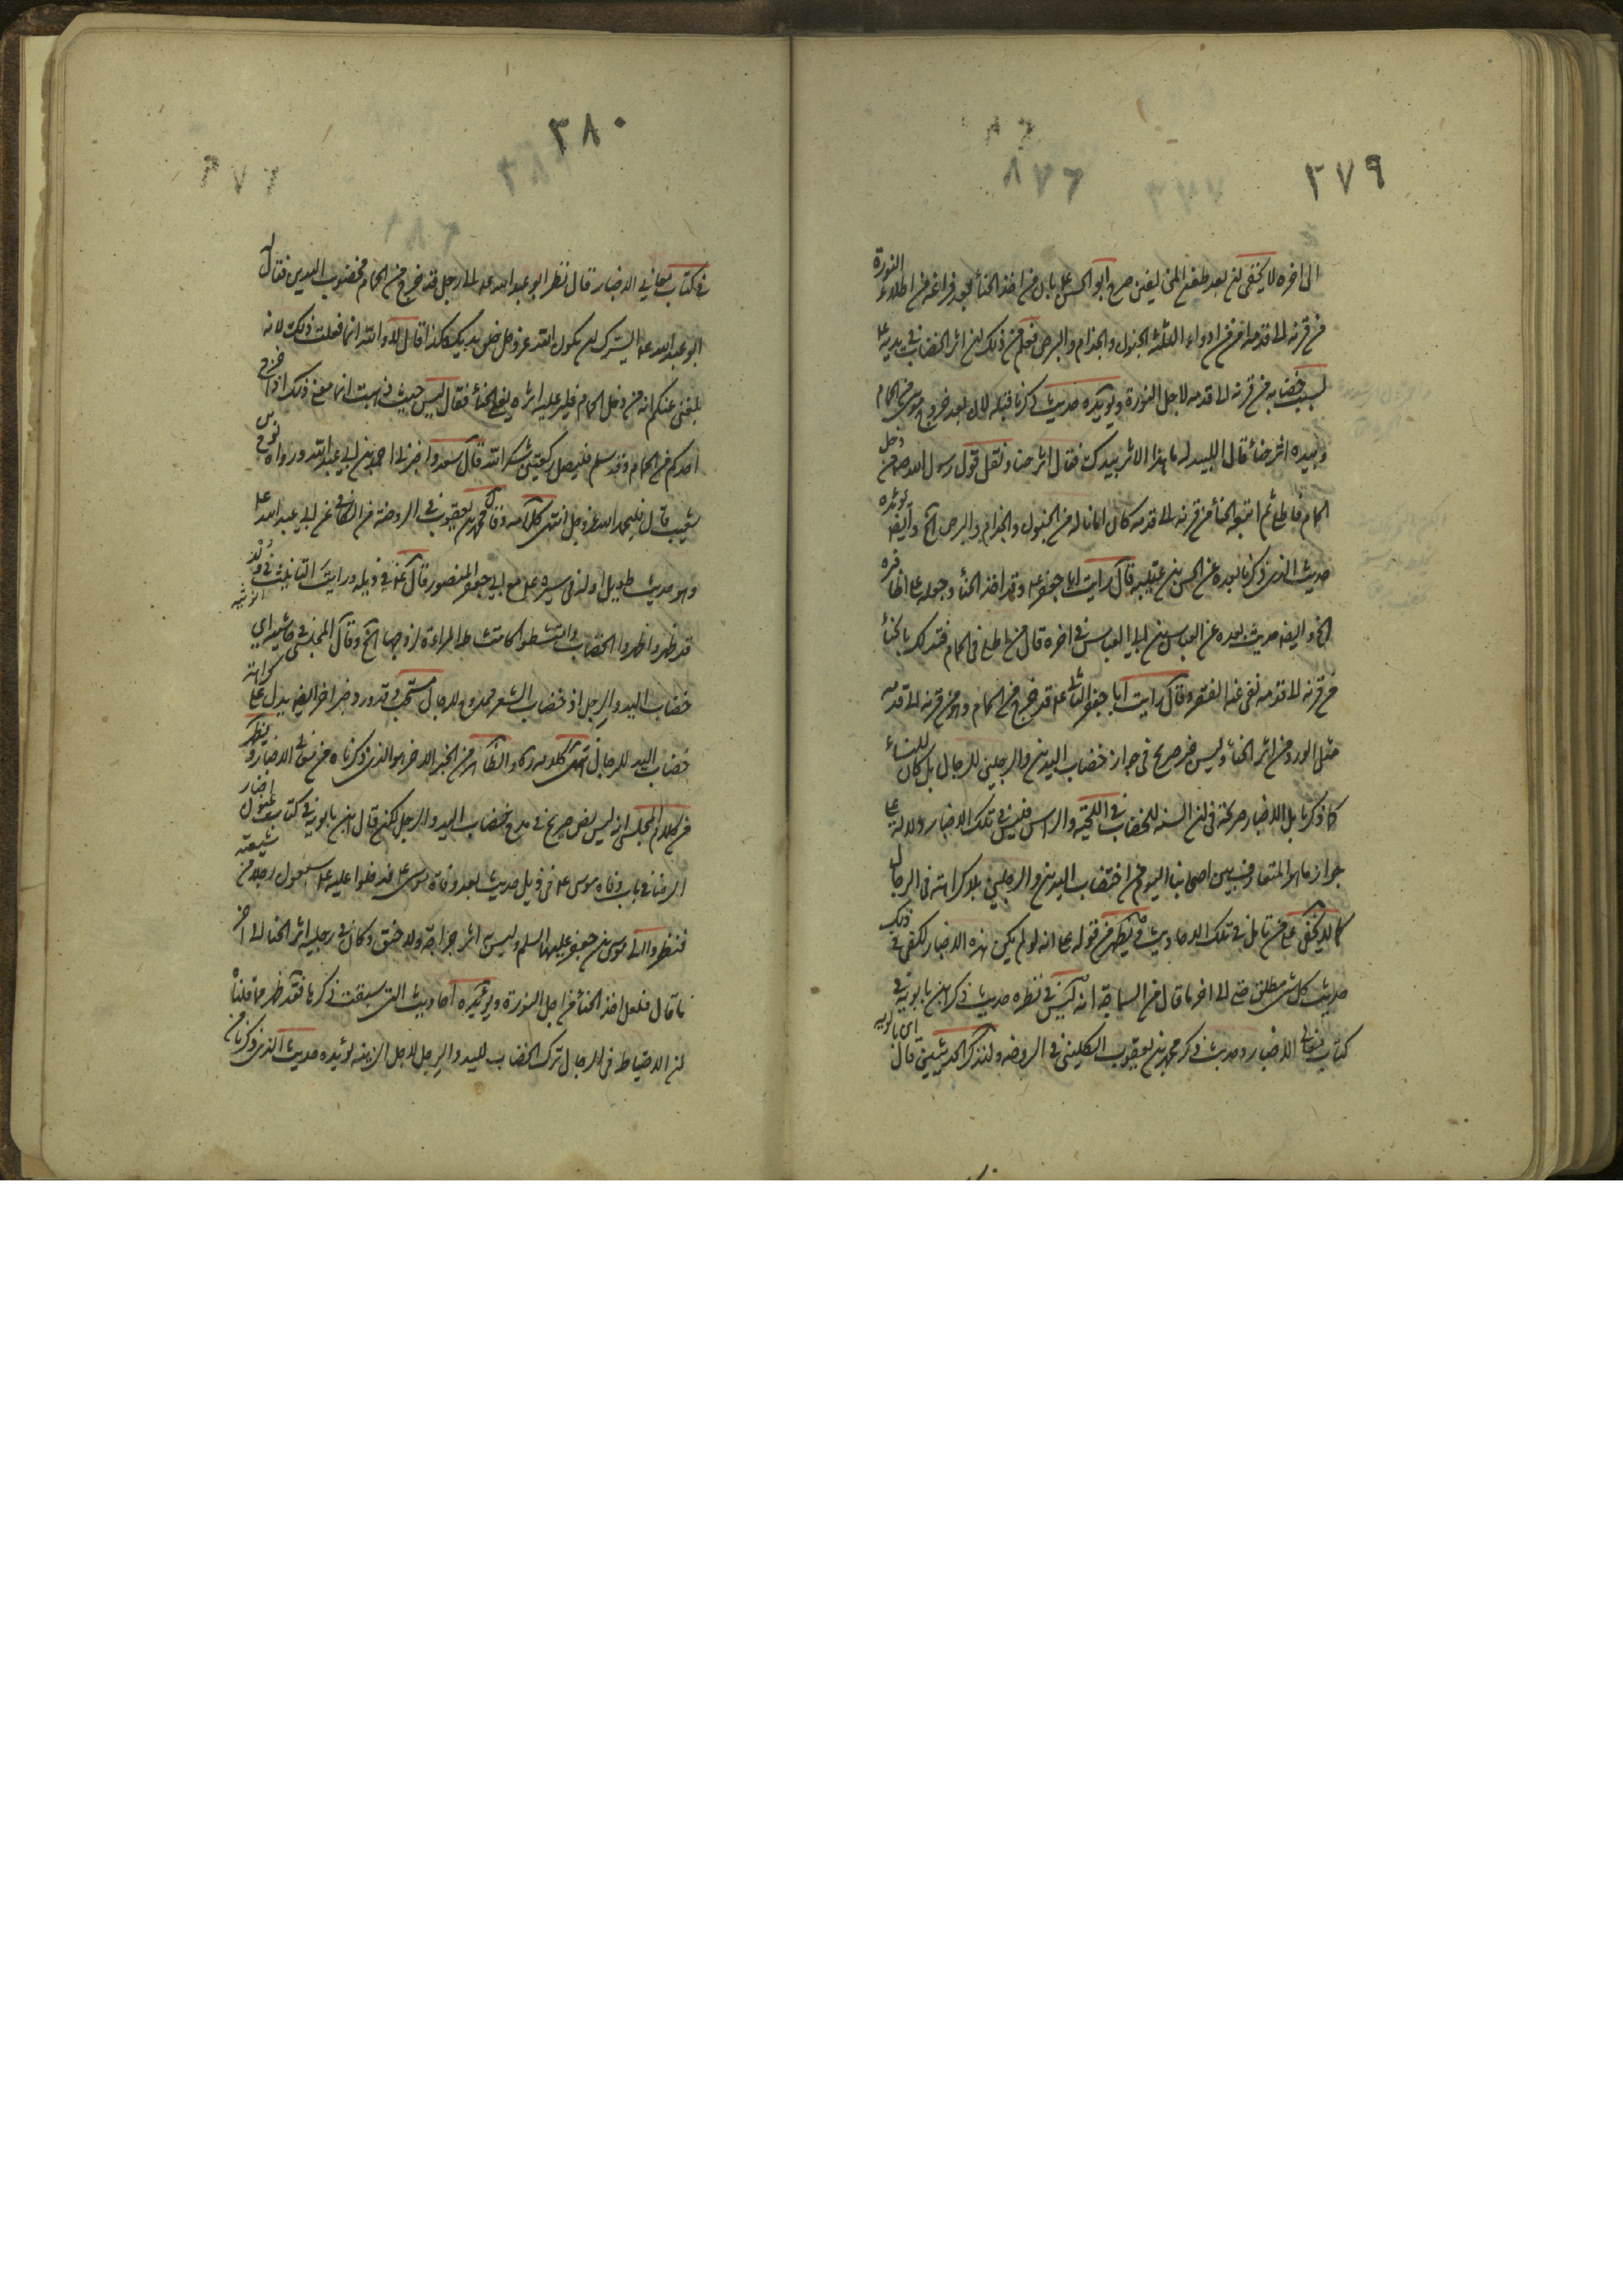 ٢٧٩
الى اخره لا يخفى ان بعد طفع المنى ليعنى صرح ابو الحسن ع بان من اخذ الحناء بعد فراغه من اطلاء النورة
من قرنه الى قدمه امن من ادواء الثلثة الجنون والجذام والبرص فعلم من ذلك ان اثر الخضاب في يديه ع
لسبب خضابه من قرنه الى قدمه لاجل النورة ويؤيده حديث ذكرنا قبله لان بعد خروج موسى من الحمام
وبيده اثر حناء قال السيد له ما هذا الاثر بيدك فقال اثر حنا ونقل قول رسول الله ص من دخل
الحمام فاطلى ثم اتبعه الحناء من قرنه الى قدمه كان امانا له من الجنون والجذام والبرص الخ وايضا يؤيده
حديث الذى ذكرنا بعده عن الحسن بن عتيبة قال رايت ابا جعفر ع وقد اخذ الحناء وجعله على اظافره
الخ وايضا حديث بعده عن العباس بن ابي العباس في اخره قال من اطلى في الحمام فتدلك بالحناء
من قرنه الى قدمه نفى عنه الفقر وقال رايت ابا جعفر الثانى ع قد خرج من الحمام وهو من قرنه الى قدمه
مثل الورد من اثر الحناء وليس خبر صريح في جواز خضاب اليدين والرجلين للرجال بل كان للنساء
كما ذكرنا بل الاخبار صريحة في ان السنة للخضاب في اللحية والراس فليس في تلك الاخبار دلالة على
جواز ما هو المتعارف بين اصحابنا اليوم من اختضاب اليدين والرجلين بلا كراهة في الرجال
كما لا يخفى على من تامل في تلك الاحاديث فيظهر من قوله على انه لو لم يكن هذه الاخبار لكفى في ذلك
حديث كل شئ مطلق حتى الى اخر ما قال من السابقة انه ليس في نظره حديث ذكر ابن بابويه في
كتاب معانى الاخبار وحديث ذكر محمد بن يعقوب الكلينى في الروضه ولنذكر الحديثين قال اى بابويه
٢٨٠
في كتاب معاني الاخبار قال نظر ابو عبد الله ع الى رجل قد خرج من الحمام مخضوب اليدين فقال له
ابو عبد الله ع ايسرك ان يكون الله عز وجل خلق يديك هكذا قال لا والله انما فعلت ذلك لانه
بلغنى عنكم انه من دخل الحمام فلير عليه اثره يعنى الحناء فقال ليس حيث ذهبت انما معنى ذلك اذا خرج
احدكم من الحمام وقد سلم فليصل ركعتين شكرا لله قال سعد واخبرنى احمد بن ابي عبد الله ورواه نوح بن
شعيب قال فليحمد الله عز وجل انتهى كلامه وقال محمد بن يعقوب في الروضة من الكافى عن ابي عبد الله ع
وهو حديث طويل اوله في سيره ع مع ابي جعفر المنصور قال ع في ذيله ورايت التانيث في ولد
قد ظهر واظهروا الخضاب وامتشطوا كما تمتشط المراءة لزوجها الخ وقال المجلسى في حاشيته اى
خضاب اليد والرجل اذ خضاب الشعر ممدوح للرجال مستحب وقد ورد خبر اخر ايضا يدل على كراهة
خضاب اليد للرجال انتهى كلامه والظاهر من الخبر الاخر هو الذى ذكرناه من معانى الاخبار ويظهر
من كلام المجلسى انه ليس نص صريح في مدح خضاب اليد والرجل لكن قال ابن بابويه في كتاب عيون اخبار
الرضا في باب وفاة موسى ع في ذيل حديث بعد وفاة موسى ع فدخلوا عليه ع سبعون رجلا من شيعته
فنظروا الى موسى بن جعفر عليهما السلم وليس اثر جراحة ولا خنق وكان في رجليه اثر الحنا الى اخر
ما قال فلعل اخذ الحناء من اجل النورة ويؤيده احاديث التى سبقت ذكرها فقد ظهر مما قلنا
ان الاحتياط في للرجال ترك الخضاب لليد والرجل لاجل الزينه يؤيده حديث الذى ذكرنا من